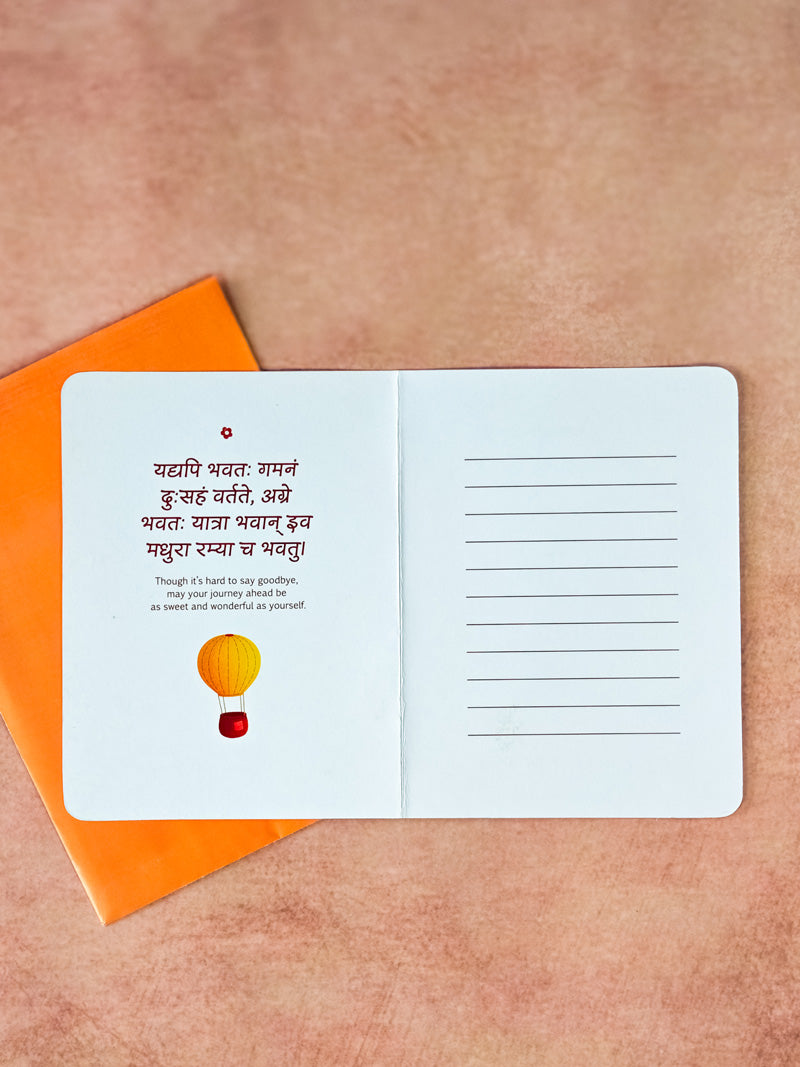 यद्यपि भवतः गमनं
दुःसहं वर्तते, अग्रे
भवतः यात्रा भवान् इव
मधुरा रम्या च भवतु।
Though it's hard to say goodbye,
may your journey ahead be
as sweet and wonderful as yourself.